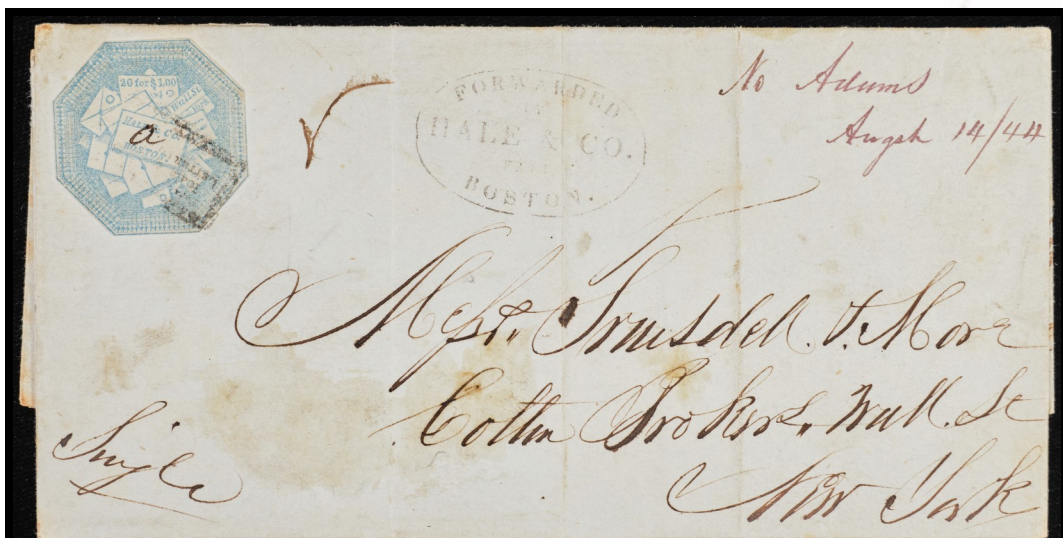 20 for $1.00
WALL St.
HALE & Co.
BOSTON
a
FORWARDED
BY
HALE & CO.
FROM
BOSTON.
No Adams
Augst 14/44
Messrs. Truesdell. & More
Cotton Brokers, Wall. St
New York
Single